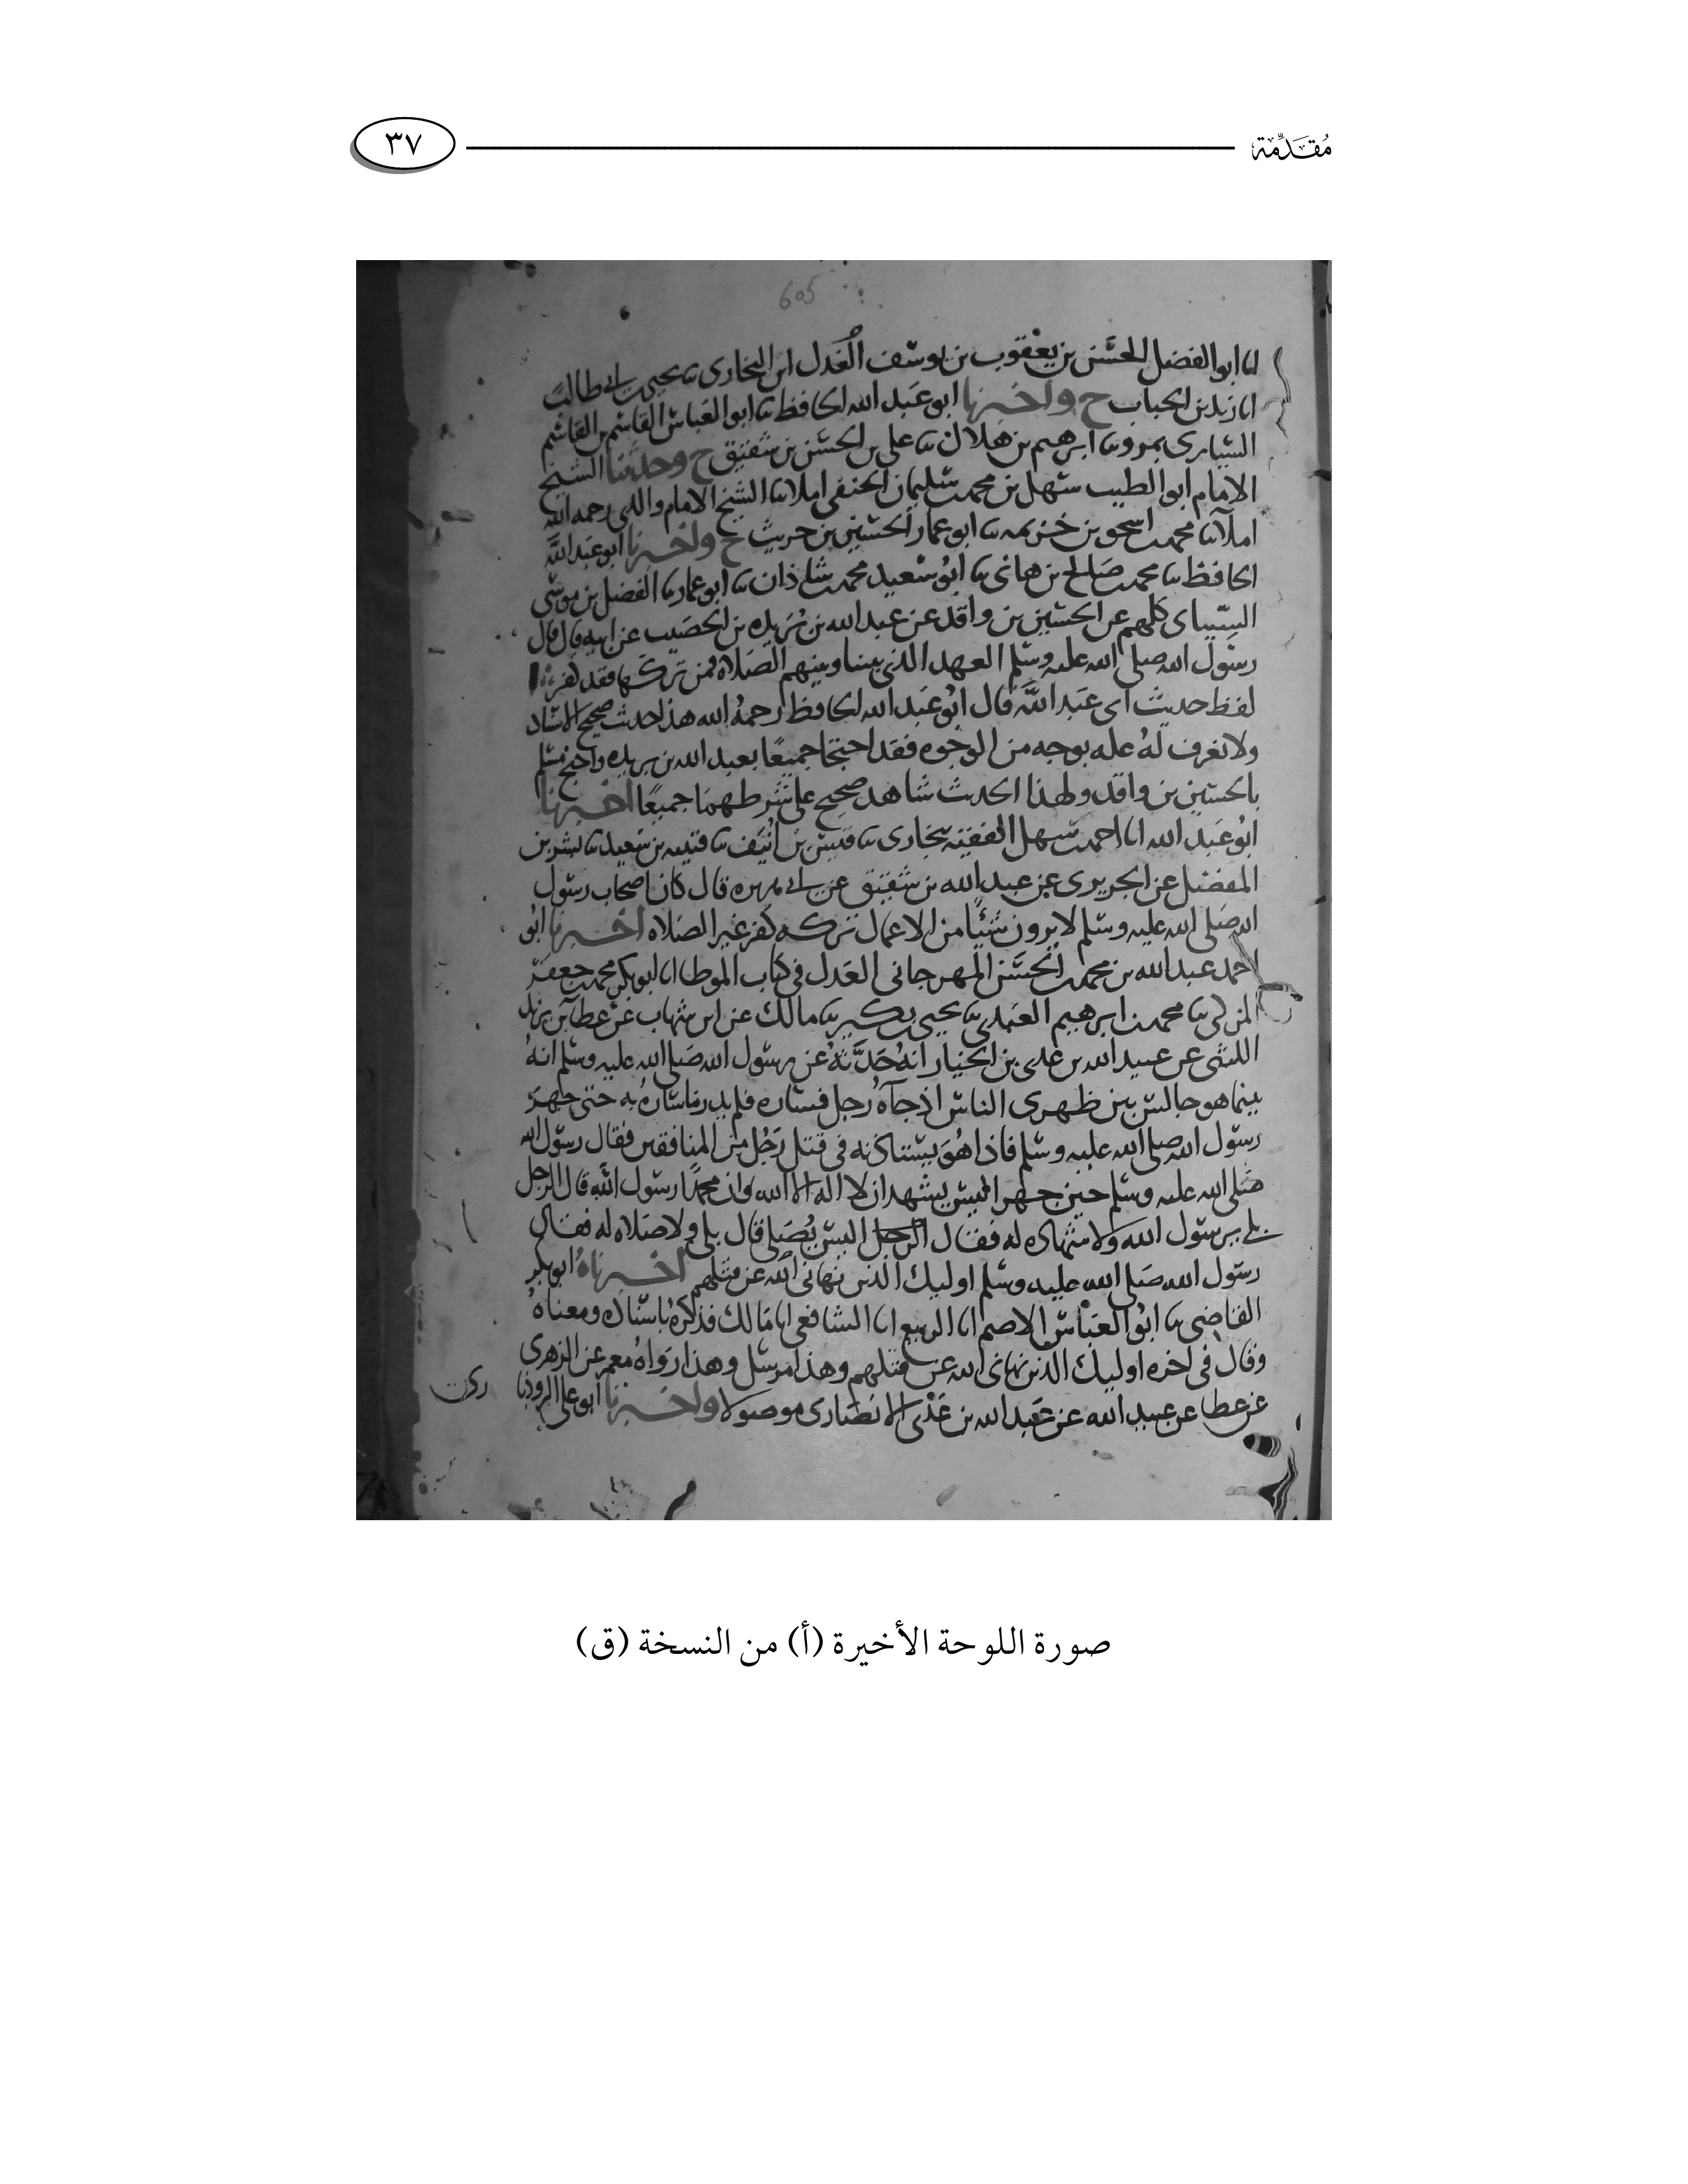 مُقَدِّمَة
٣٧
605
انا ابو الفضل الحسن بن يعقوب بن يوسف العدل ابن البخارى نا يحيى بن ابى طالب
انا زيد بن الحباب ح واخبرنا ابو عبد الله الحافظ نا ابو العباس القاسم بن القاسم
السيارى بمرو نا ابرهيم بن هلال نا على بن الحسن بن شقيق ح وحدثنا الشيخ
الامام ابو الطيب سهل بن محمد بن سليمان الحنفى املا نا الشيخ الامام والدى رحمه الله
املآ نا محمد بن اسحق بن خزيمه نا ابو عمار الحسين بن حريث ح واخبرنا ابو عبد الله
الحافظ نا محمد بن صالح بن هانى نا ابو سعيد محمد بن شاذان نا ابو عمار نا الفضل بن موسى
السينانى كلهم عن الحسين بن واقد عن عبد الله بن بريده بن الحصيب عن ابيه قال قال
رسول الله صلى الله عليه وسلم العهد الذى بيننا وبينهم الصلاه فمن تركها فقد كفر
لفظ حديث ابى عبد الله قال ابو عبد الله الحافظ رحمه الله هذا حديث صحيح الاسناد
ولا نعرف له عله بوجه من الوجوه فقد احتجا جميعًا بعبد الله بن بريده واحتج مسلم
بالحسين بن واقد ولهذا الحديث شاهد صحيح على شرطهما جميعًا اخبرنا
ابو عبد الله انا احمد بن سهل الفقيه ببخارى نا قيس بن انيف نا قتيبه بن سعيد نا بشر بن
المفضل عن الجريرى عن عبد الله بن شقيق عن ابى هريره قال كان اصحاب رسول
الله صلى الله عليه وسلم لا يرون شيًا من الاعمال تركه كفر غير الصلاه اخبرنا ابو
احمد عبد الله بن محمد بن الحسن المهرجانى العدل فى كتاب الموطا انا ابو بكر محمد بن جعفر
المزكى نا محمد بن ابرهيم العبدى نا يحيى بن بكير نا مالك عن ابن شهاب عن عطا بن يزيد
الليثى عن عبيد الله بن عدى بن الخيار انه حدثه عن رسول الله صلى الله عليه وسلم انه
بينما هو جالس بين ظهرى الناس اذ جآه رجل فساره فلم يدر ما ساره به حتى جهر
رسول الله صلى الله عليه وسلم فاذا هو يستاذنه فى قتل رجل من المنافقين فقال رسول الله
صلى الله عليه وسلم حين جهر اليس يشهد ان لا اله الا الله وان محمدًا رسول الله قال الرجل
بلى يرسول الله ولا شهاده له فقال الرجل اليس يصلى قال بلى ولا صلاه له فقال
رسول الله صلى الله عليه وسلم اوليك الذين نهانى الله عن قتلهم اخبرناه ابو بكر
القاضى نا ابو العباس الاصم انا الربيع انا الشافعى انا مالك فذكره باسناده ومعناه
وقال فى اخره اوليك الذين نهانى الله عن قتلهم وهذا مرسل وهذا رواه معمر عن الزهرى
عن عطا عن عبيد الله عن عبد الله بن عدى الانصارى موصولا واخبرنا ابو على الروذبا
رى
صورة اللوحة الأخيرة (أ) من النسخة (ق)